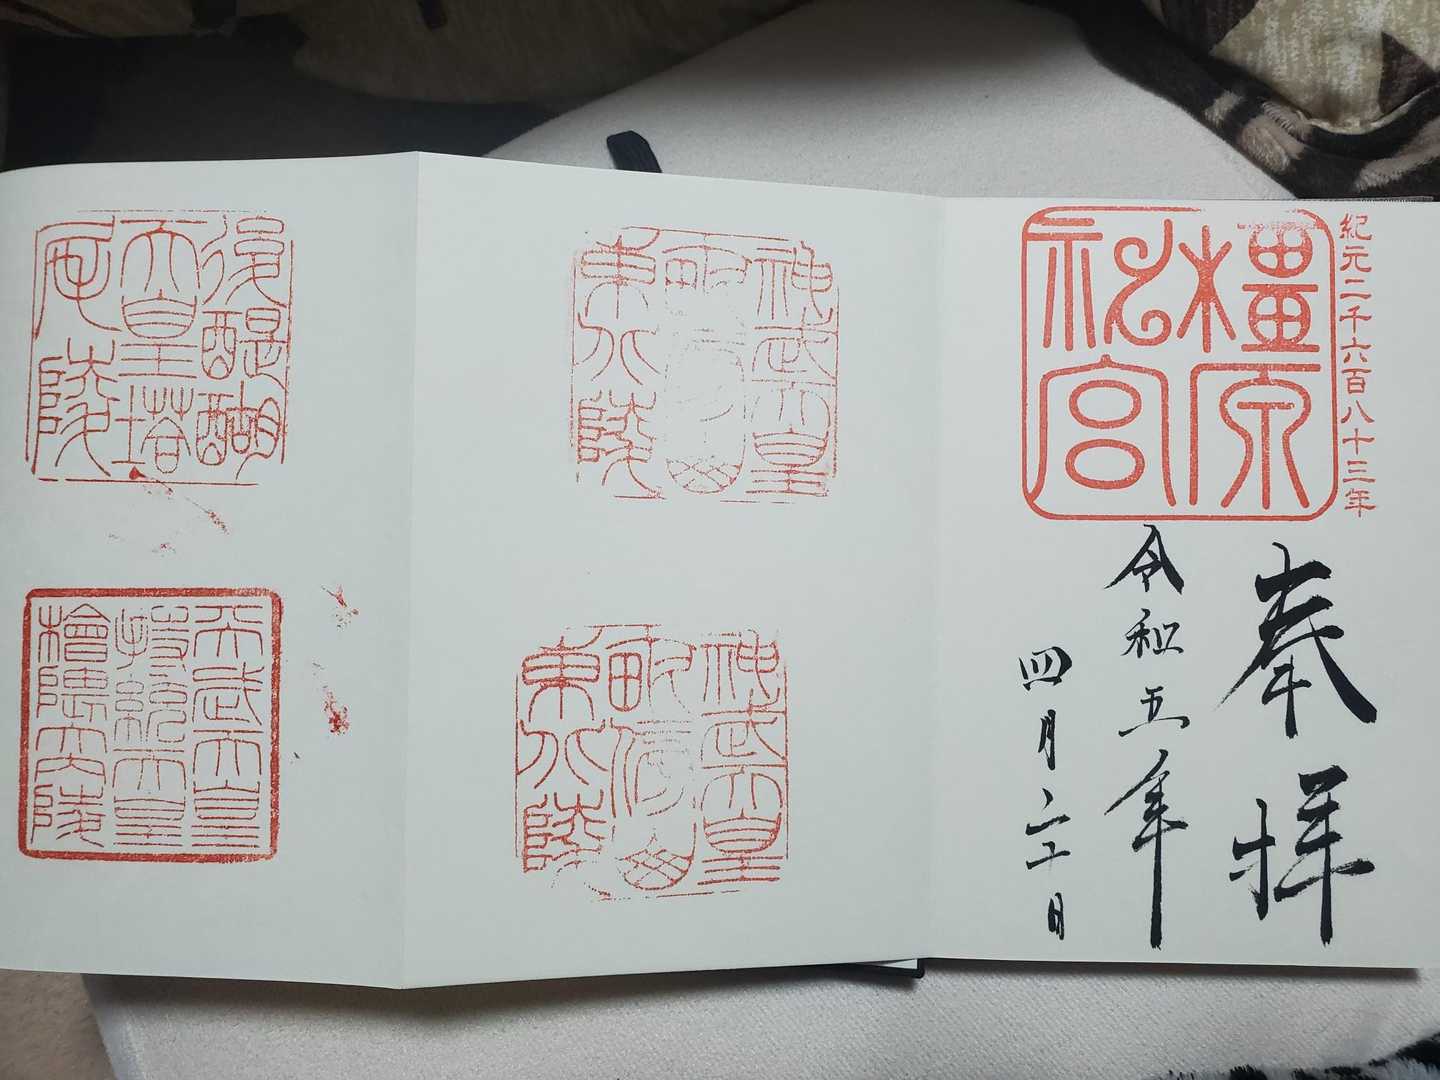 紀元二千六百八十三年
橿原
神宮
奉拝
令和五年
四月二十日
神武天皇
畝傍山
東北陵
神武天皇
畝傍山
東北陵
後醍醐
天皇塔
尾陵
天武天皇
持統天皇
檜隈大内陵